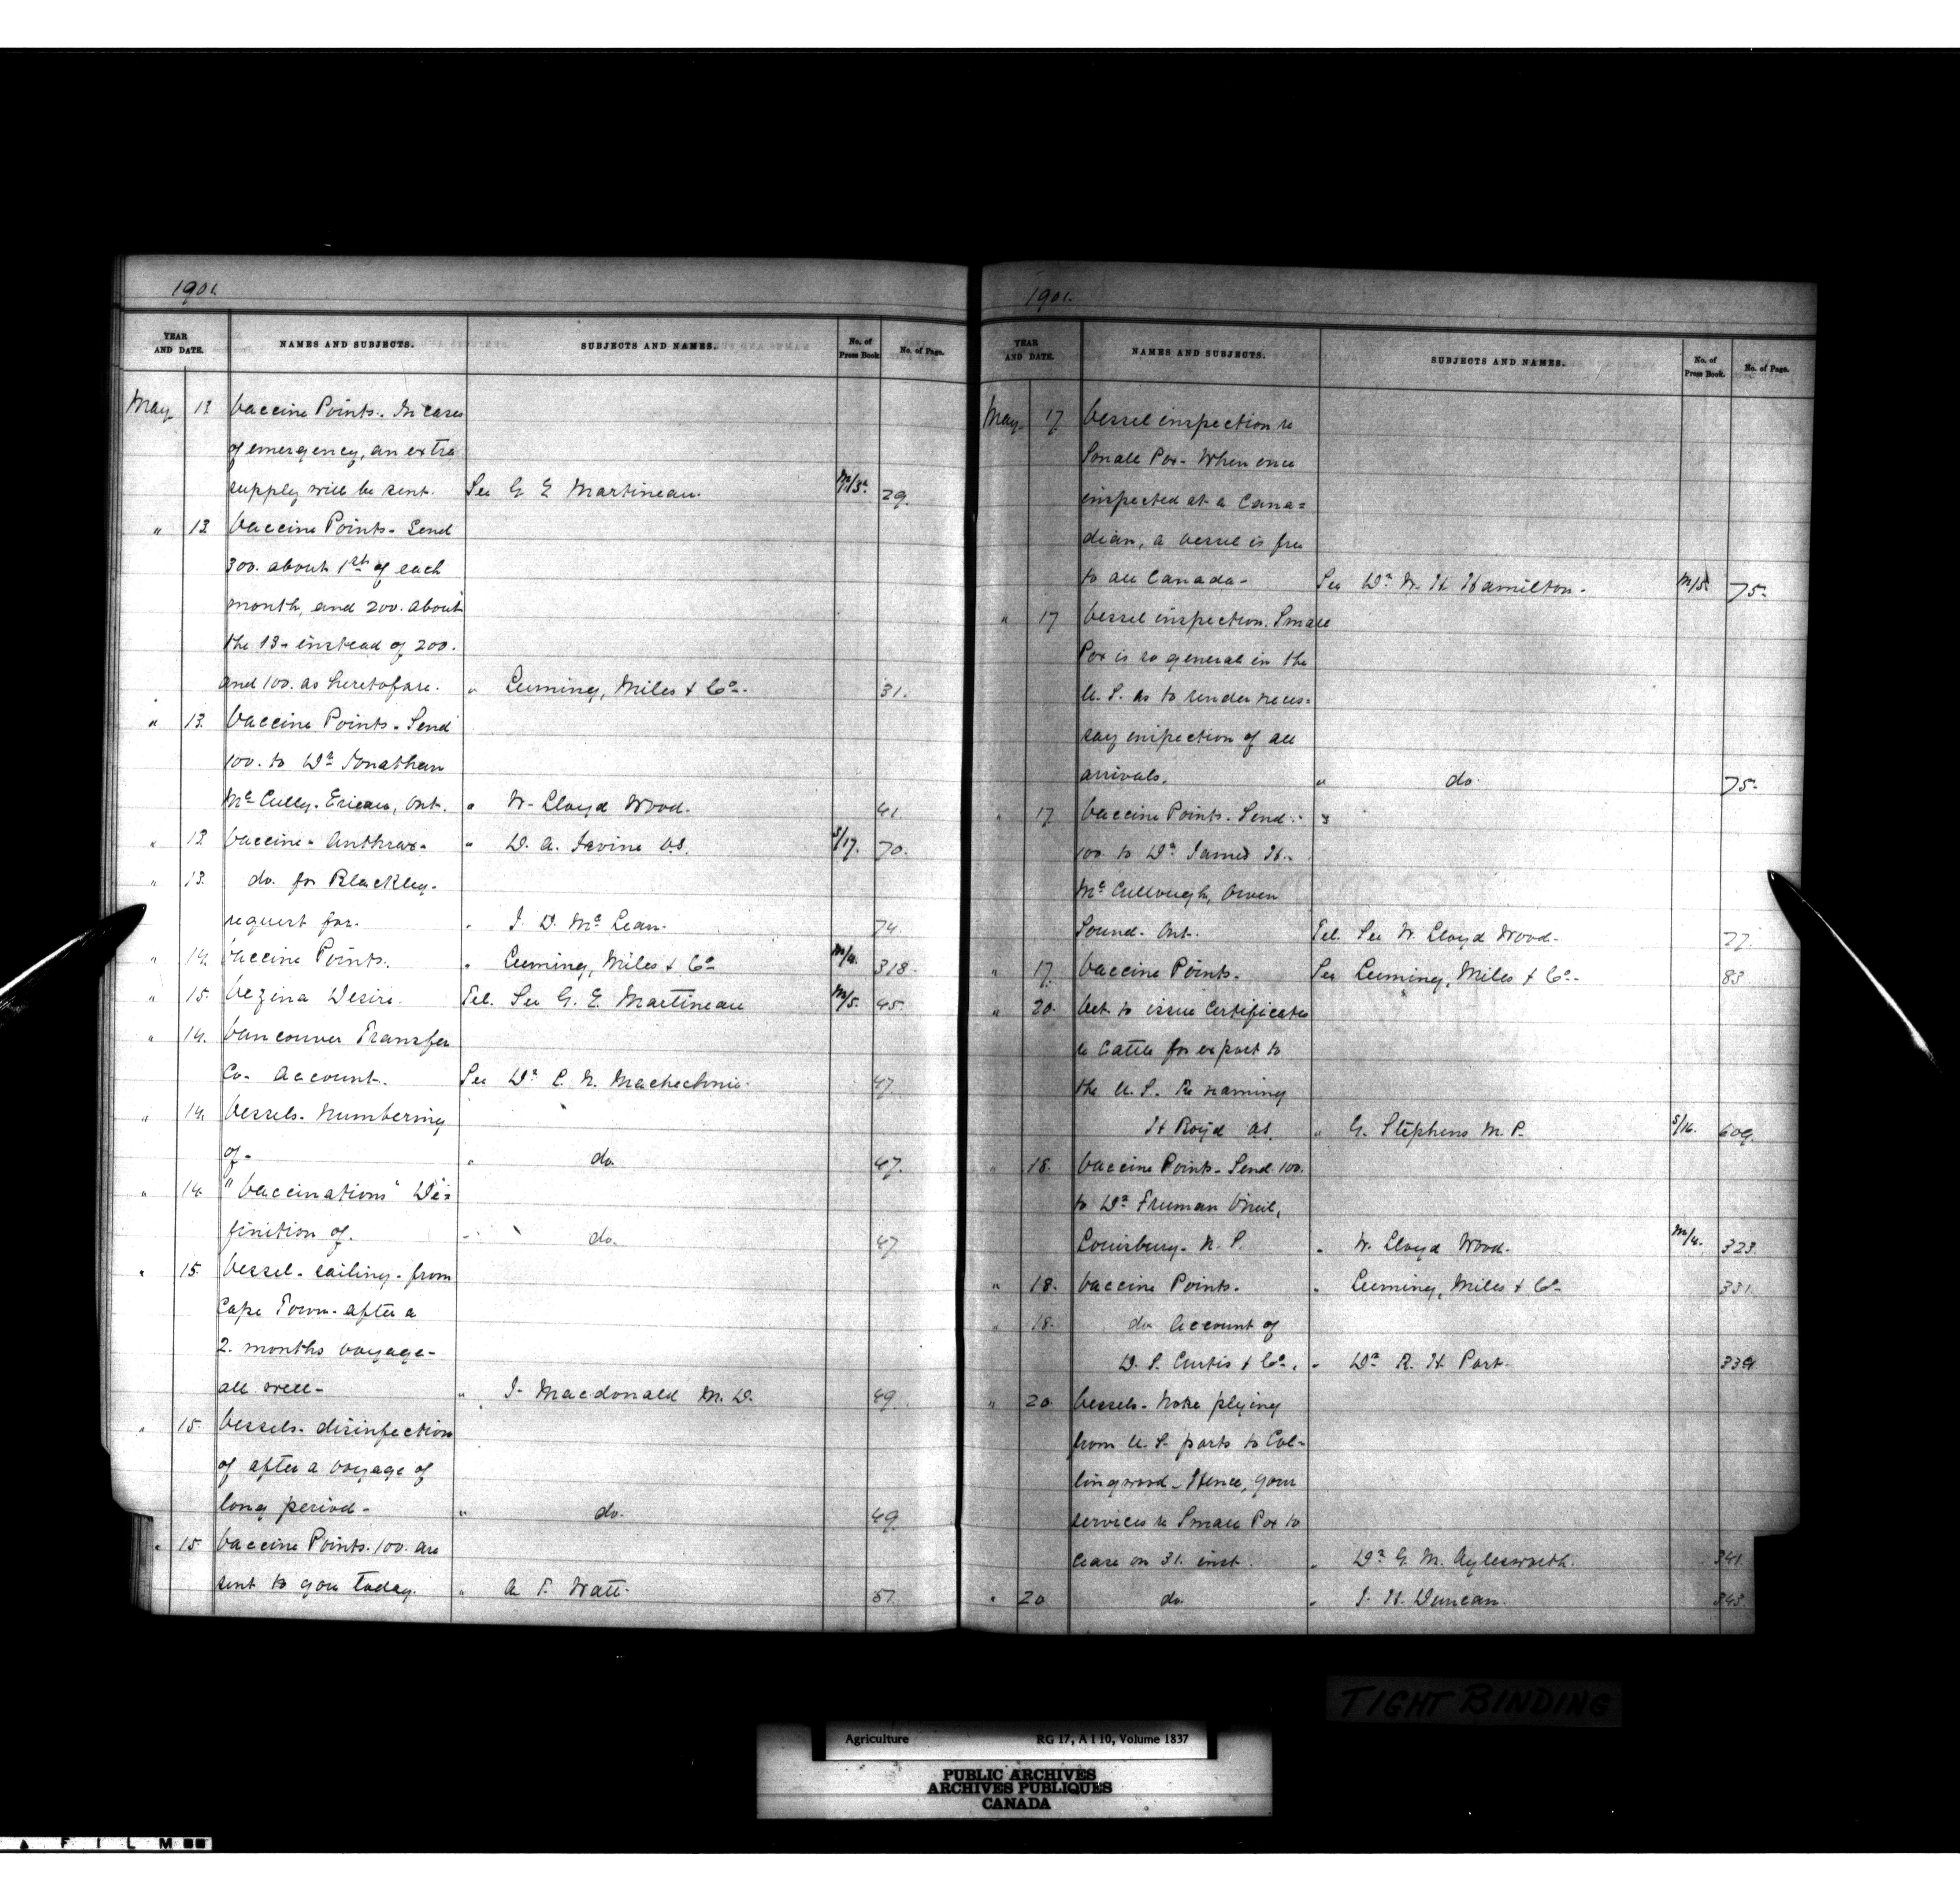 1901.
YEAR AND DATE. NAMES AND SUBJECTS. SUBJECTS AND NAMES. No. of Press Book. No. of Page.
May 13 Vaccine Points. In cases
of emergency, an extra
supply will be sent. See G E Martineau. 29.
" 13 Vaccine Points - Send
300. about 1st of each
month, and 200. about
the 13- instead of 200.
and 100. as heretofore. " Leeming, Miles & Co. 31.
" 13. Vaccine Points - Send
100. to Dr Jonathan
McCully. Ericau, Ont. " W. Lloyd Wood. 41.
" 13 Vaccine - Anthrax - " D. A. Irvine V.S. S/17. 70.
" 13. do. for Blackleg -
request for. " J. D. McLean. 74.
" 14. Vaccine Points. " Leeming, Miles & Co M/4. 318.
" 15. Vezina Desire. Tel. See G. E. Martineau M/5. 45.
" 14. Vancouver Transfer
Co. Account. See Dr E. N. Machechnie. 47
" 14. Vessels. Numbering
of - " do. 47.
" 14. "Vaccinations" De=
finition of. " do. 47
" 15. Vessel - sailing - from
Cape Town - after a
2. months voyage -
all well - " J. Macdonald M. D. 49.
" 15. Vessels - disinfection
of after a voyage of
long period - " do. 49.
" 15 Vaccine Points. 100. are
sent to you today. " A T. Watt. 57.
1901.
YEAR AND DATE. NAMES AND SUBJECTS. SUBJECTS AND NAMES. No. of Press Book. No. of Page.
May 17 Vessel inspection re
Small Pox - When once
inspected at a Cana=
dian, a vessel is free
to all Canada - See Dr W. H. Hamilton - M/5. 75.
" 17 Vessel inspection. Small
Pox is so general in the
U. S. as to render neces=
say inspection of all
arrivals. " do 75.
" 17 Vaccine Points. Send
100. to Dr James H.
McCullough, Owen
Sound. Ont. Tel. See W. Lloyd Wood - 77.
" 17 Vaccine Points. See Leeming, Miles & Co. 83.
" 20. Vet. to issue Certificates
re Cattle for export to
the U. S. Re naming
H Boyd VS. " G. Stephens M. P. S/16. 609.
" 18. Vaccine Points - Send 100.
to Dr Freeman O'Neil,
Louisburg - N. S. " W. Lloyd Wood. M/4. 323.
" 18. Vaccine Points. " Leeming, Miles & Co 331.
" 18. do Account of
D. S. Curtis & Co. " Dr R. H. Port. 339.
" 20. Vessels - None plying
from U. S. ports to Col=
lingwood - Hence, your
services re Small Pox to
cease on 31. inst. " Dr G. M. Aylesworth. 341.
" 20 do. " J. H. Duncan. 343.
TIGHT BINDING
Agriculture RG 17, A I 10, Volume 1837
PUBLIC ARCHIVES
ARCHIVES PUBLIQUES
CANADA
A FILM